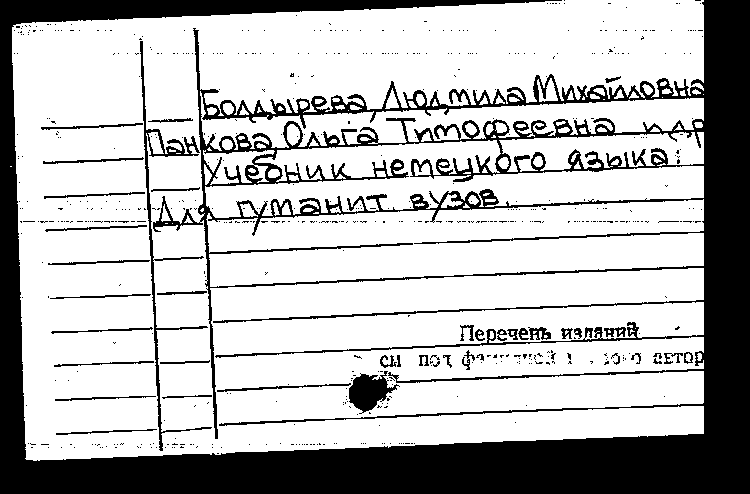 Болдырева, Людмила Михайловна
Панкова, Ольга Тимофеевна и др
Учебник немецкого языка:
Для гуманит вузов.
Перечень изданий
см под